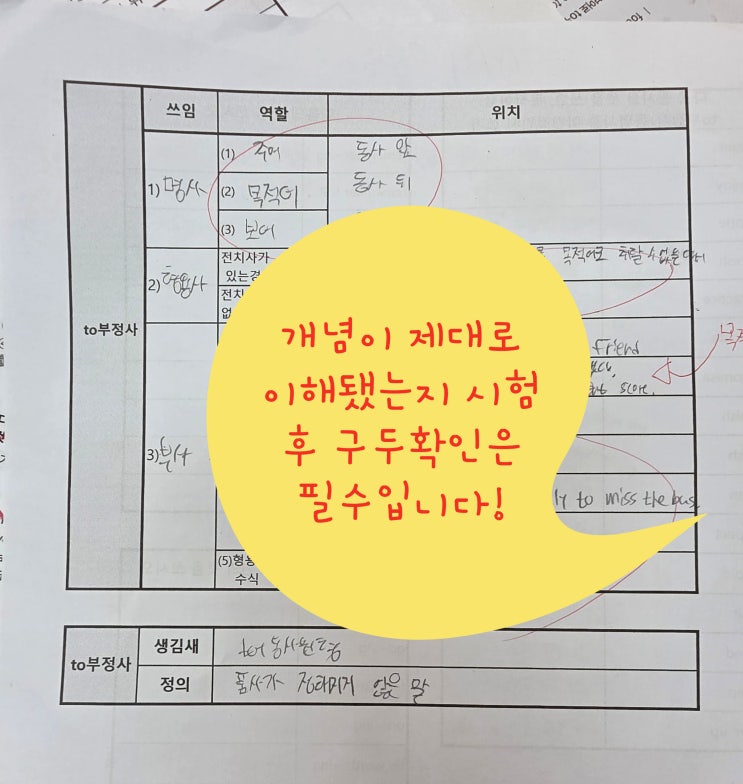 쓰임 역할 위치
to부정사
1) 명사
(1) 주어 동사 앞
(2) 목적어 동사 뒤
(3) 보어
2) 형용사
전치사가
있는경
목적어로 취할 수 없을 때
전치
없
friend
score.
3) 부사
to miss the bus
(5)형용
수식
개념이 제대로
이해됐는지 시험
후 구두확인은
필수입니다!
to부정사
생김새 to+동사원형
정의 품사가 정해지지 않은 말